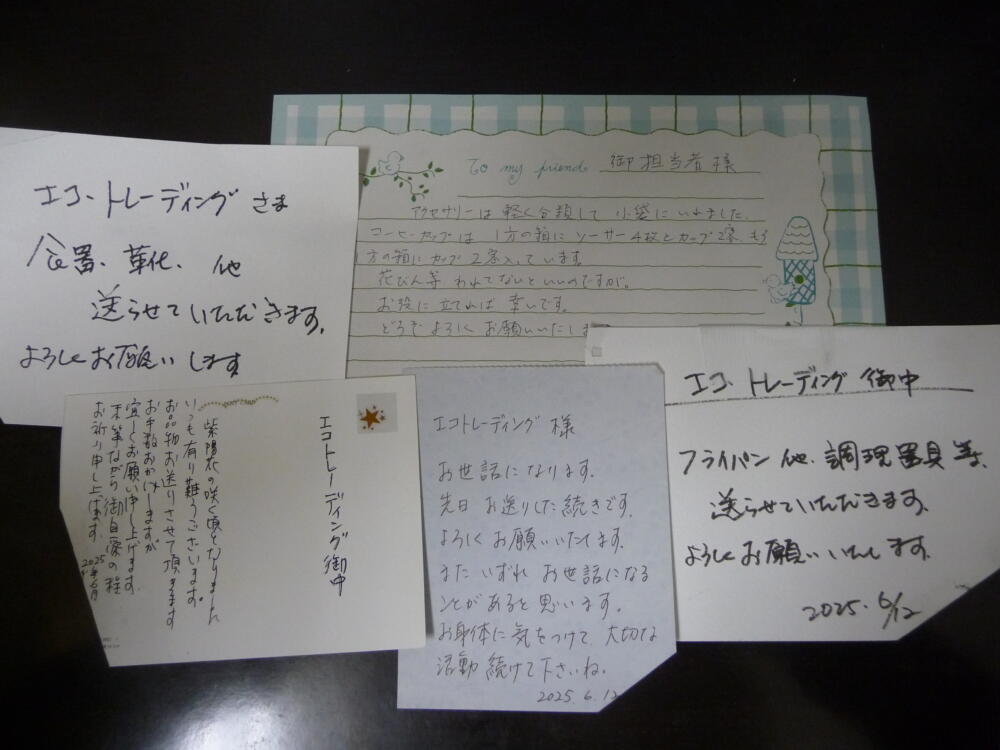 エコ・トレーディング さま
食器、革化、他
送らせていただきます。
よろしくお願いします
To my friend 御担当者様
アクセサリーは軽く分類して小袋にいれました。
コーヒーカップは 1方の箱にソーサー4枚とカップ2客、もう
1方の箱にカップ2客入っています。
花びん等 われてないといいのですが。
お役に立てれば 幸いです。
どうぞよろしく お願いいたしま
エコトレーディング御中
紫陽花の咲く頃となりました
いつも有り難うございます。
お品物お送りさせて頂きます
お手数おかけしますが
宜しくお願い申し上げます。
末筆ながら御自愛の程
お祈り申し上げます。
2025年6月
エコトレーディング 様
お世話になります。
先日 お送りした続きです。
よろしくお願いいたします。
また いずれ お世話になる
ことがあると思います。
お身体に気をつけて、大切な
活動 続けて下さいね。
2025.6.12
エコ・トレーディング 御中
フライパン 他、調理器具等、
送らせていただきます。
よろしくお願いいたします。
2025.6/12